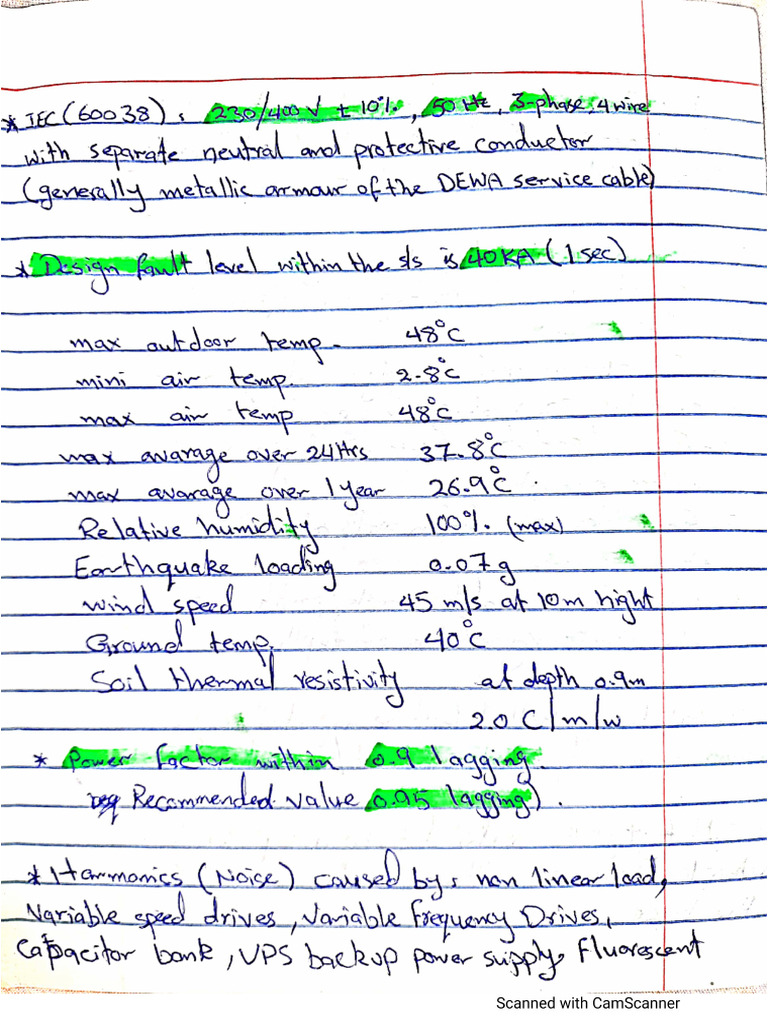 * IEC (60038) : 230/400V ± 10%, 50 Hz, 3-phase, 4 wire
with separate neutral and protective conductor
(generally metallic armour of the DEWA service cable)
* Design fault level within the s/s is 40KA (1 sec)
max outdoor temp. 48°C
mini air temp. 2.8°C
max air temp 48°C
max avarage over 24Hrs 37.8°C
max avarage over 1 year 26.9°C
Relative humidity 100% (max)
Earthquake loading 0.07g
wind speed 45 m/s at 10m hight
Ground temp. 40°C
Soil thermal resistivity at depth 0.9m
2.0 C/m/w
* Power factor within 0.9 lagging
Recommended value 0.95 lagging).
* Harmonics (Noise) caused by: non linear load,
Variable speed drives, Variable frequency Drives,
Capacitor bank, UPS backup power supply, fluorescent
Scanned with CamScanner